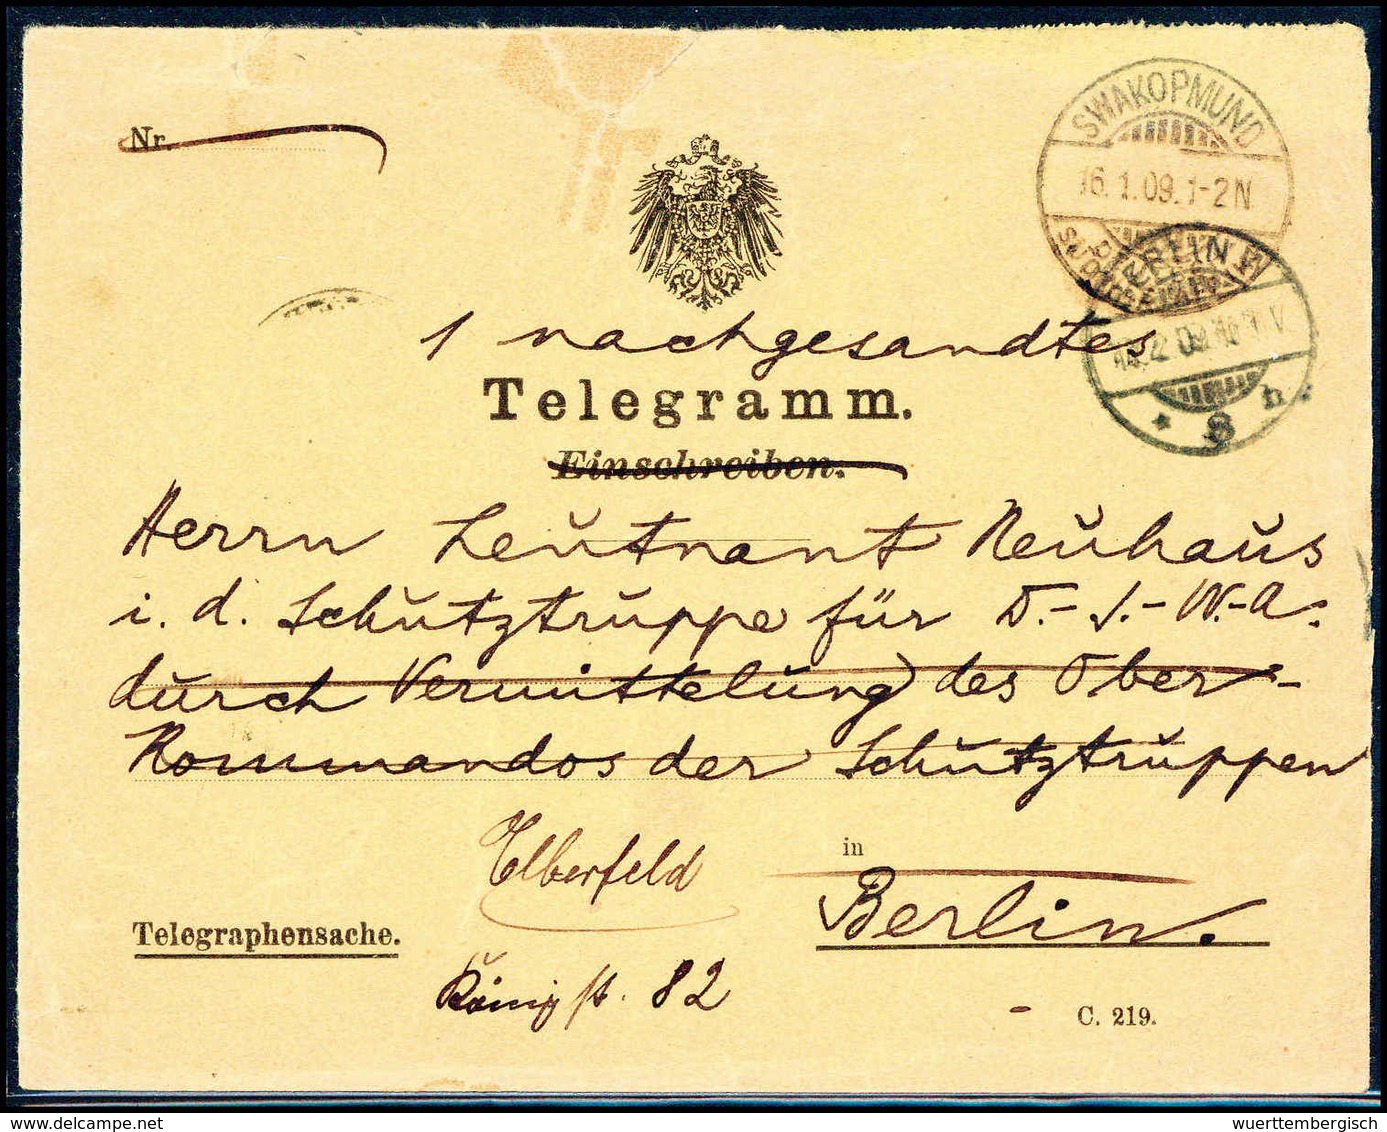 Nr.
SWAKOPMUND
16.1.09.1-2N
BERLIN W
8 h.
1 nachgesandtes
Telegramm.
Einschreiben.
Herrn Leutnant Neuhaus
i. d. Schutztruppe für D.-S.-W.-A.
durch Vermittelung des Ober-
Kommandos der Schutztruppen
in
Elberfeld
Berlin.
Telegraphensache.
Königst. 82
C. 219.
wuerttembergisch